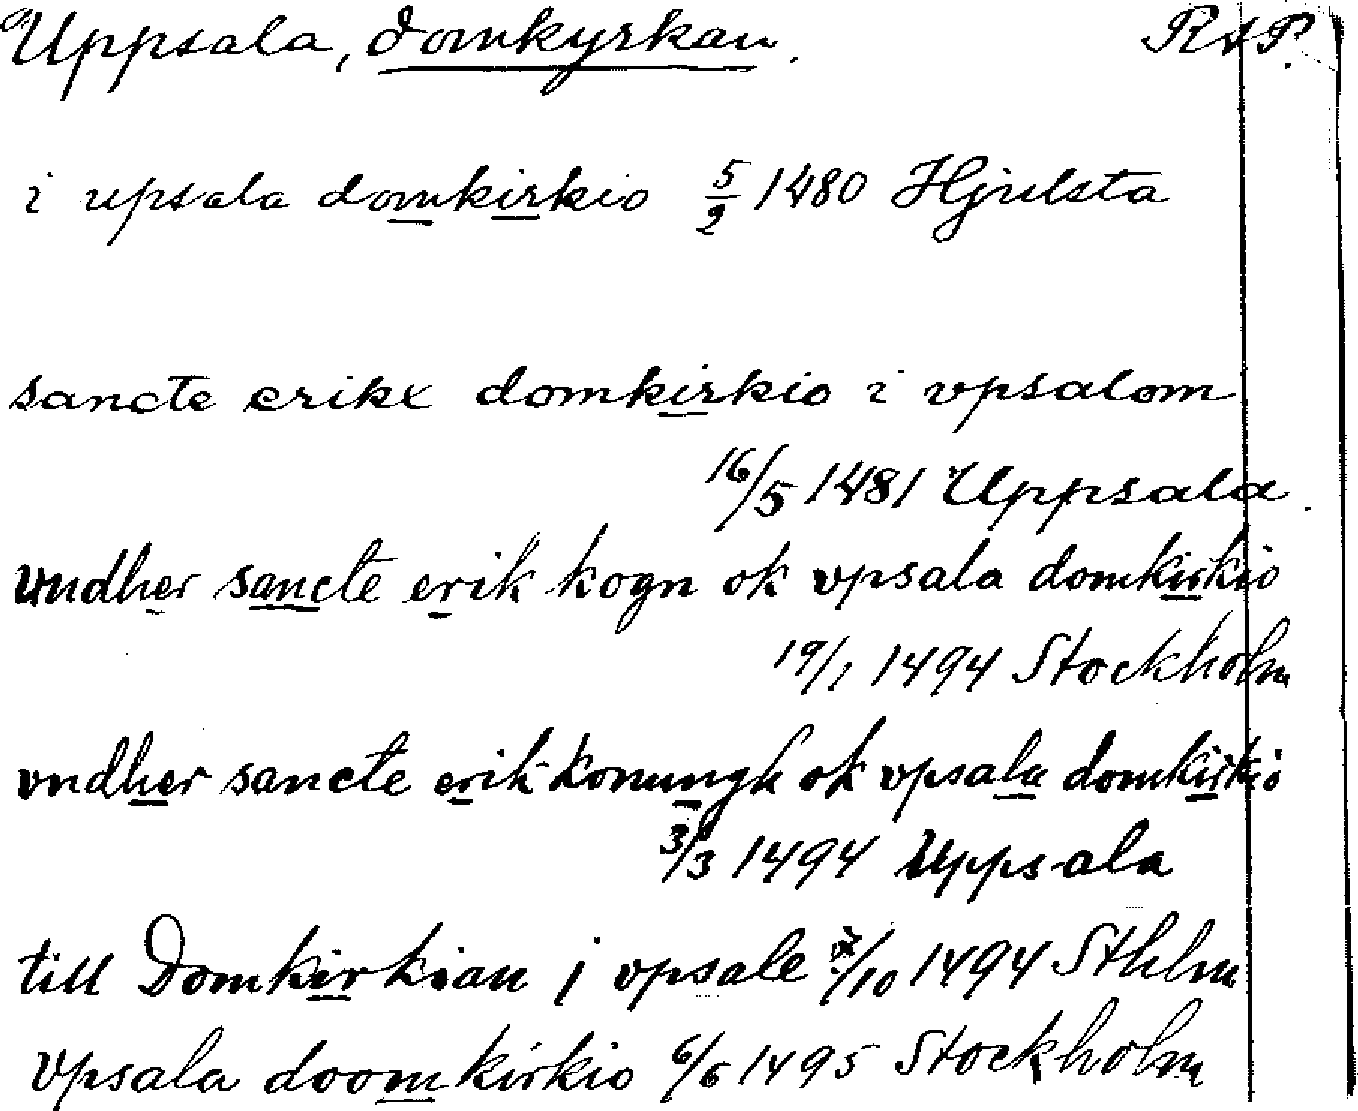 Uppsala, domkyrkan. RAP.
i upsala domkirkio 5/2 1480 Hjulsta
sancte erikx domkirkio i vpsalom
16/5 1481 Uppsala.
vndher sancte erik kogn ok vpsala domkirkio
19/1 1494 Stockholm
vndher sancte erik konungh ok vpsala domkirkio
3/3 1494 Uppsala
till Domkirkian j vpsale /10 1494 Sthlm
vpsala doomkirkio 6/6 1495 Stockholm